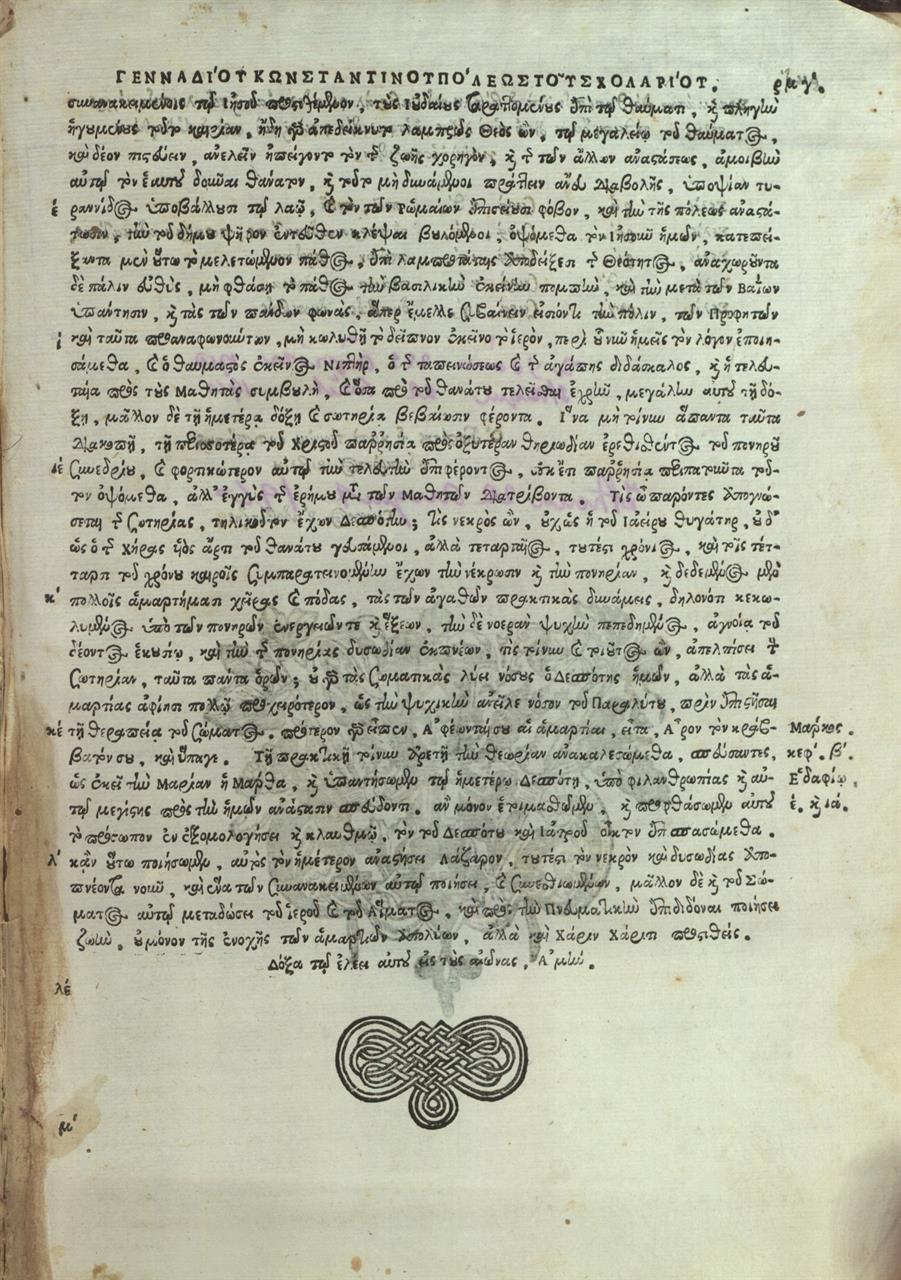 ΓΕΝΝΑΔΙ´ΟΥ ΚΩΝΣΤΑΝΤΙΝΟΥΠΟ´ΛΕΩΣ ΤΟΥ͂ ΣΧΟΛΑΡΙ´ΟΥ. ρμγ´.
συνανακειμένοις τῷ Ἰησοῦ προστιθέμενον, τοὺς Ἰουδαίους ταραττομένους ἐπὶ τῷ θαύματι, καὶ πληγὴν
ἡγουμένους τοῦτο καιρίαν, ἤδη γὰρ ἀπεδείκνυτο λαμπρῶς Θεὸς ὢν, τῷ μεγαλείῳ τοῦ θαύματος,
καὶ δέον πιστεύειν, ἀνελεῖν ἠπείγοντο τὸν τῆς ζωῆς χορηγὸν, καὶ τῆς τῶν ἄλλων ἀναστάσεως, ἀμοιβὴν
αὐτῷ τὸν ἑαυτοῦ δοῦναι θάνατον, καὶ τοῦτο μὴ δυνάμενοι πράττειν ἄνευ διαβολῆς, ὑποψίαν τυ-
έ ραννίδος ὑποβάλλουσι τῷ λαῷ, καὶ τὸν τῶν Ῥωμαίων ἐπισείουσι φόβον, καὶ τὴν τῆς πόλεως ἀναστά-
τωσιν, τὴν τοῦ δήμου ψῆφον ἐντεῦθεν κλέψαι βουλόμενοι, ὀψόμεθα τὸν Ἰησοῦν ἡμῶν, κατεπεί-
ξαντα μὲν οὕτω τὸ μελετώμενον πάθος, ἐπὶ λαμπροτάταις ἀποδείξεσι τῆς Θεότητος, ἀναχωροῦντα
δὲ πάλιν εὐθὺς, μὴ φθάσῃ τὸ πάθος τὴν βασιλικὴν ἐκείνην πομπὴν, καὶ τὴν μετὰ τῶν Βαΐων
ὑπάντησιν, καὶ τὰς τῶν παίδων φωνὰς, ἅπερ ἔμελλε συμβαίνειν εἰσιόντι τὴν πόλιν, τῶν Προφητῶν
ί καὶ ταῦτα προαναφωνούντων, μὴ κωλυθῇ τὸ δεῖπνον ἐκεῖνο τὸ ἱερὸν, περὶ οὗ νῦν ἡμεῖς τὸν λόγον ἐποιη-
σάμεθα, καὶ ὁ θαυμαστὸς ἐκεῖνος Νιπτὴρ, ὁ τῆς ταπεινώσεως καὶ τῆς ἀγάπης διδάσκαλος, καὶ ἡ τελευ-
ταία πρὸς τοὺς Μαθητὰς συμβουλὴ, καὶ ὅσα πρὸ τοῦ θανάτου τελεῖσθαι ἐχρῆν, μεγάλην αὐτοῦ τῇ δό-
ξῃ, μᾶλλον δὲ τῇ ἡμετέρᾳ δόξῃ καὶ σωτηρίᾳ βεβαίωσιν φέροντα. Ἵνα μὴ τοίνυν ἅπαντα ταῦτα
διακοπῇ, τῇ περισσοτέρᾳ τοῦ Χριστοῦ παρρησίᾳ πρὸς ὀξυτέραν θηριωδίαν ἐρεθισθέντος τοῦ πονηροῦ
ιέ Συνεδρίου, καὶ φορτικώτερον αὐτῷ τὴν τελευτὴν ἐπιφέροντος, οὐκ ἔτι παρρησίᾳ περιπατοῦντα τοῦ-
τον ὀψόμεθα, ἀλλ' ἐγγὺς τῆς ἐρήμου μετὰ τῶν Μαθητῶν διατρίβοντα. Τίς ὦ παρόντες ἀπογνώ-
σεται τῆς Σωτηρίας, τηλικοῦτον ἔχων Δεσπότην; τίς νεκρὸς ὢν, οὐχ ὡς ἡ τοῦ Ἰαείρου θυγάτηρ, οὐδ'
ὡς ὁ τῆς Χήρας υἱὸς ἄρτι τοῦ θανάτου γευσάμενοι, ἀλλὰ τεταρταῖος, τουτέστι χρόνιος, καὶ τοῖς τέτ-
ταρσι τοῦ χρόνου καιροῖς συμπαρατεινομένην ἔχων τὴν νέκρωσιν καὶ τὴν πονηρίαν, καὶ δεδεμένος μὲν
κ´ πολλοῖς ἁμαρτήμασι χεῖρας καὶ πόδας, τὰς τῶν ἀγαθῶν πρακτικὰς δυνάμεις, δηλονότι κεκω-
λυμένος ὑπὸ τῶν πονηρῶν ἐνεργειῶν τε καὶ ἕξεων, τὴν δὲ νοερὰν ψυχὴν πεπεδημένος, ἀγνοίᾳ τοῦ
δέοντος ἑκουσίῳ, καὶ τὴν τῆς πονηρίας δυσωδίαν ἐκπνέων, τίς τοίνυν καὶ τοιοῦτος ὢν, ἀπελπίσει τὴν
Σωτηρίαν, ταῦτα πάντα ὁρῶν; οὐ γὰρ τὰς Σωματικὰς λύει νόσους ὁ Δεσπότης ἡμῶν, ἀλλὰ τὰς ἁ-
μαρτίας ἀφίησι πολλῷ προχειρότερον, ὡς τὴν ψυχικὴν ἀνεῖλε νόσον τοῦ Παραλύτου, πρὶν ἐπιστῆσαι
κέ τῇ θεραπείᾳ τοῦ Σώματος. πρότερον γὰρ εἰπὼν, Ἀφέωνταί σου αἱ ἁμαρτίαι, εἶτα, Ἆρον τὸν κράβ- Μάρκος
βατόν σου, καὶ ὕπαγε. Τῇ πρακτικῇ τοίνυν ἀρετῇ τὴν θεωρίαν ἀνακαλεσώμεθα, σπεύσαντες, κεφ. β´.
ὡς ἐκεῖ τὴν Μαρίαν ἡ Μάρθα, καὶ ὑπαντήσωμεν τῷ ἡμετέρῳ Δεσπότῃ, ὑπὸ φιλανθρωπίας καὶ αὐ- Ἐδαφίῳ
τῷ μεγίστης πρὸς τὴν ἡμῶν ἀνάστασιν σπεύδοντι. ἂν μόνον ἑτοιμασθῶμεν, καὶ προφθάσωμεν αὐτοῦ έ. καὶ ιά.
τὸ πρόσωπον ἐν ἐξομολογήσει καὶ κλαυθμῷ, τὸν τοῦ Δεσπότου καὶ Ἰατροῦ οἶκτον ἐπισπασώμεθα.
λ´ κἂν οὕτω ποιήσωμεν, αὐτὸς τὸν ἡμέτερον ἀναστήσει Λάζαρον, τουτέστι τὸν νεκρὸν καὶ δυσωδίας ἀπο-
πνέοντα νοῦν, καὶ ἕνα τῶν συνανακειμένων αὐτῷ ποιήσει, καὶ συνεσθιωμένων, μᾶλλον δὲ καὶ τοῦ Σώ-
ματος αὐτῷ μεταδώσει τοῦ ἱεροῦ καὶ τοῦ Αἵματος, καὶ πρὸς τὴν Πνευματικὴν ἐπιδιδόναι ποιήσει
ζωὴν, οὐ μόνον τῆς ἐνοχῆς τῶν ἁμαρτιῶν ἀπολύων, ἀλλὰ καὶ Χάριν Χάριτι προστιθείς.
Δόξα τῷ ἐλέει αὐτοῦ εἰς τοὺς αἰῶνας, Ἀμήν.
λέ
μ´